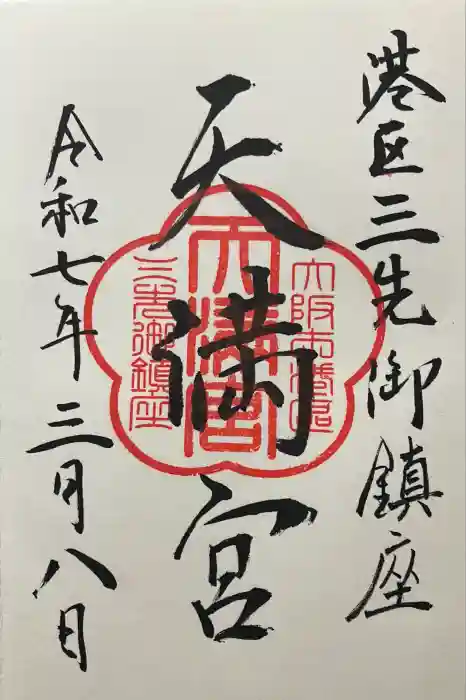 港区三先御鎮座
天満宮
令和七年三月八日
大阪市港区
天満宮
三先御鎮座